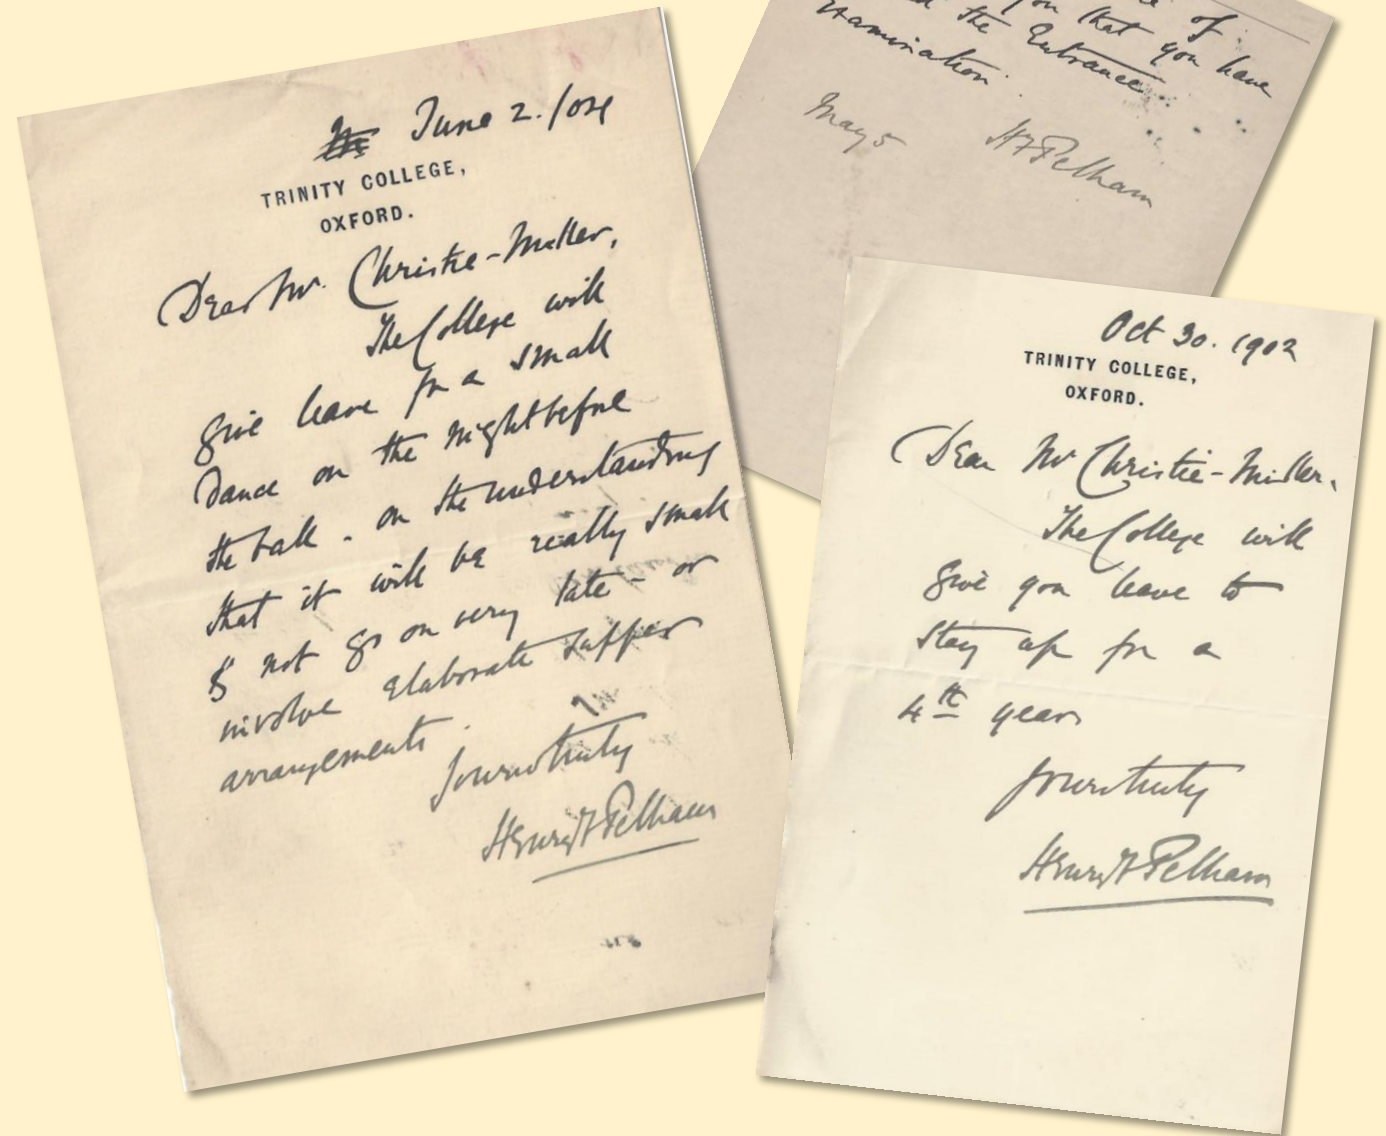 June 2. /02
TRINITY COLLEGE,
OXFORD.
Dear Mr. Christie-Miller,
The College will
give leave for a small
dance on the night before
the ball - on the understanding
that it will be really small
& not go on very late - or
involve elaborate supper
arrangements.
Yours truly
Henry F Pelham
of
you that you have
the Entrance
Examination.
May 5
H F Pelham
Oct 30. 1902
TRINITY COLLEGE,
OXFORD.
Dear Mr Christie-Miller,
The College will
give you leave to
stay up for a
4th year
Yours truly
Henry F Pelham